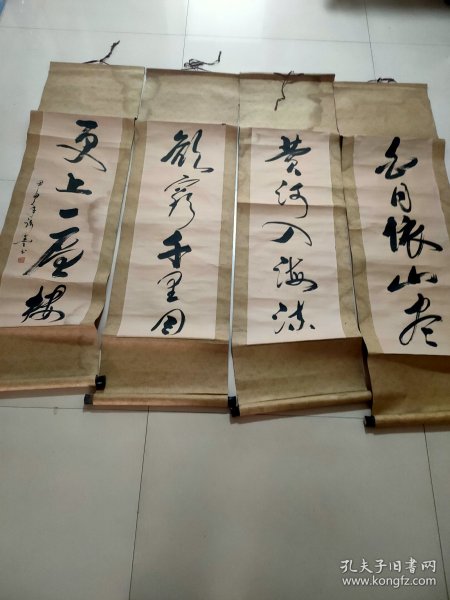 白日依山尽
黄河入海流
欲窮千里目
更上一层樓
孔夫子旧书网
www.kongfz.com